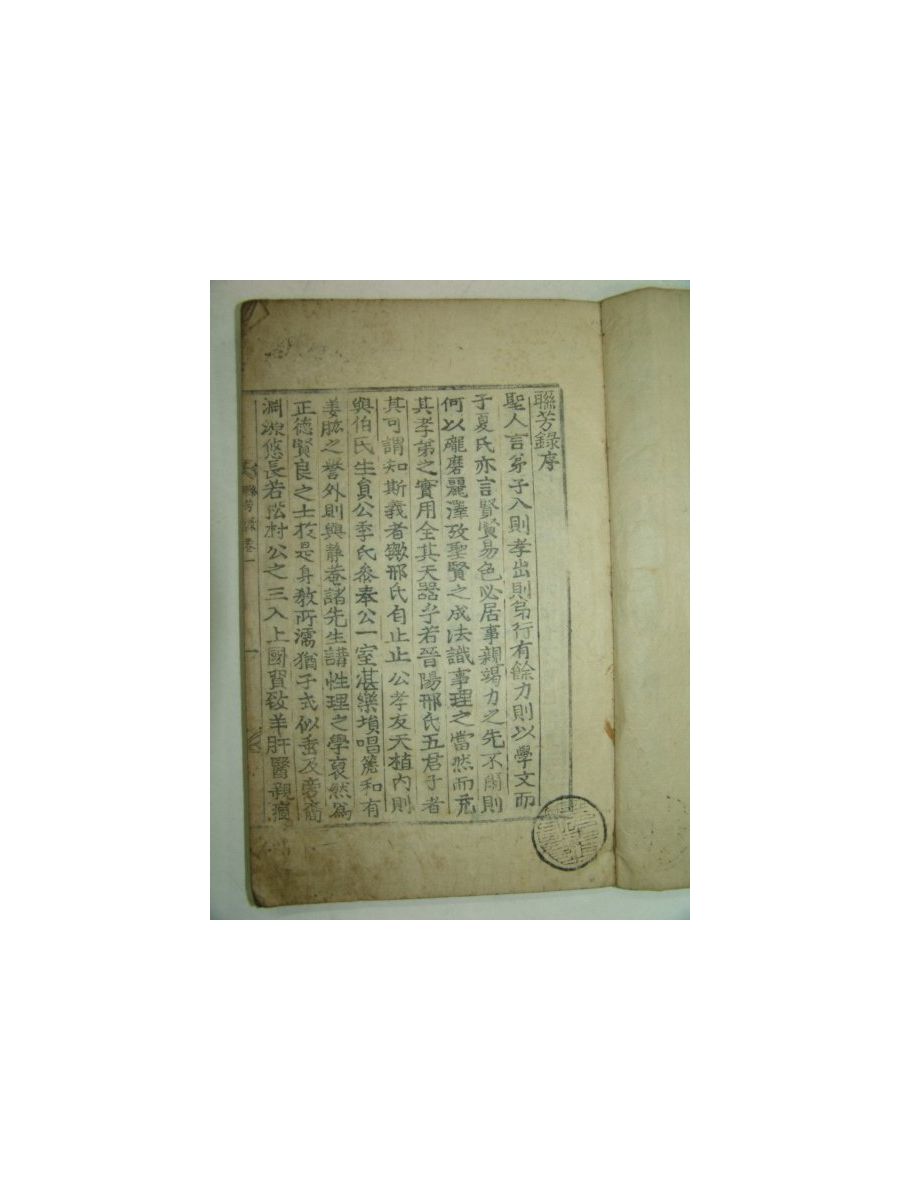 聯芳錄序
聖人言弟子入則孝出則弟行有餘力則以學文而
子夏氏亦言賢賢易色必居事親竭力之先不爾則
何以礲磨麗澤攷聖賢之成法識事理之當然而充
其孝弟之實用全其天器乎若晉陽邢氏五君子者
其可謂知斯義者歟邢氏有止止公孝友天植內則
與伯氏生員公季氏叅奉公一室湛樂塤唱篪和有
姜肱之譽外則與靜菴諸先生講性理之學裒然爲
正德賢良之士於是身敎所濡猶子式似垂及旁裔
淵源悠長若松村公之三入上國貿致羊肝醫親瘦
聯芳錄卷一
一